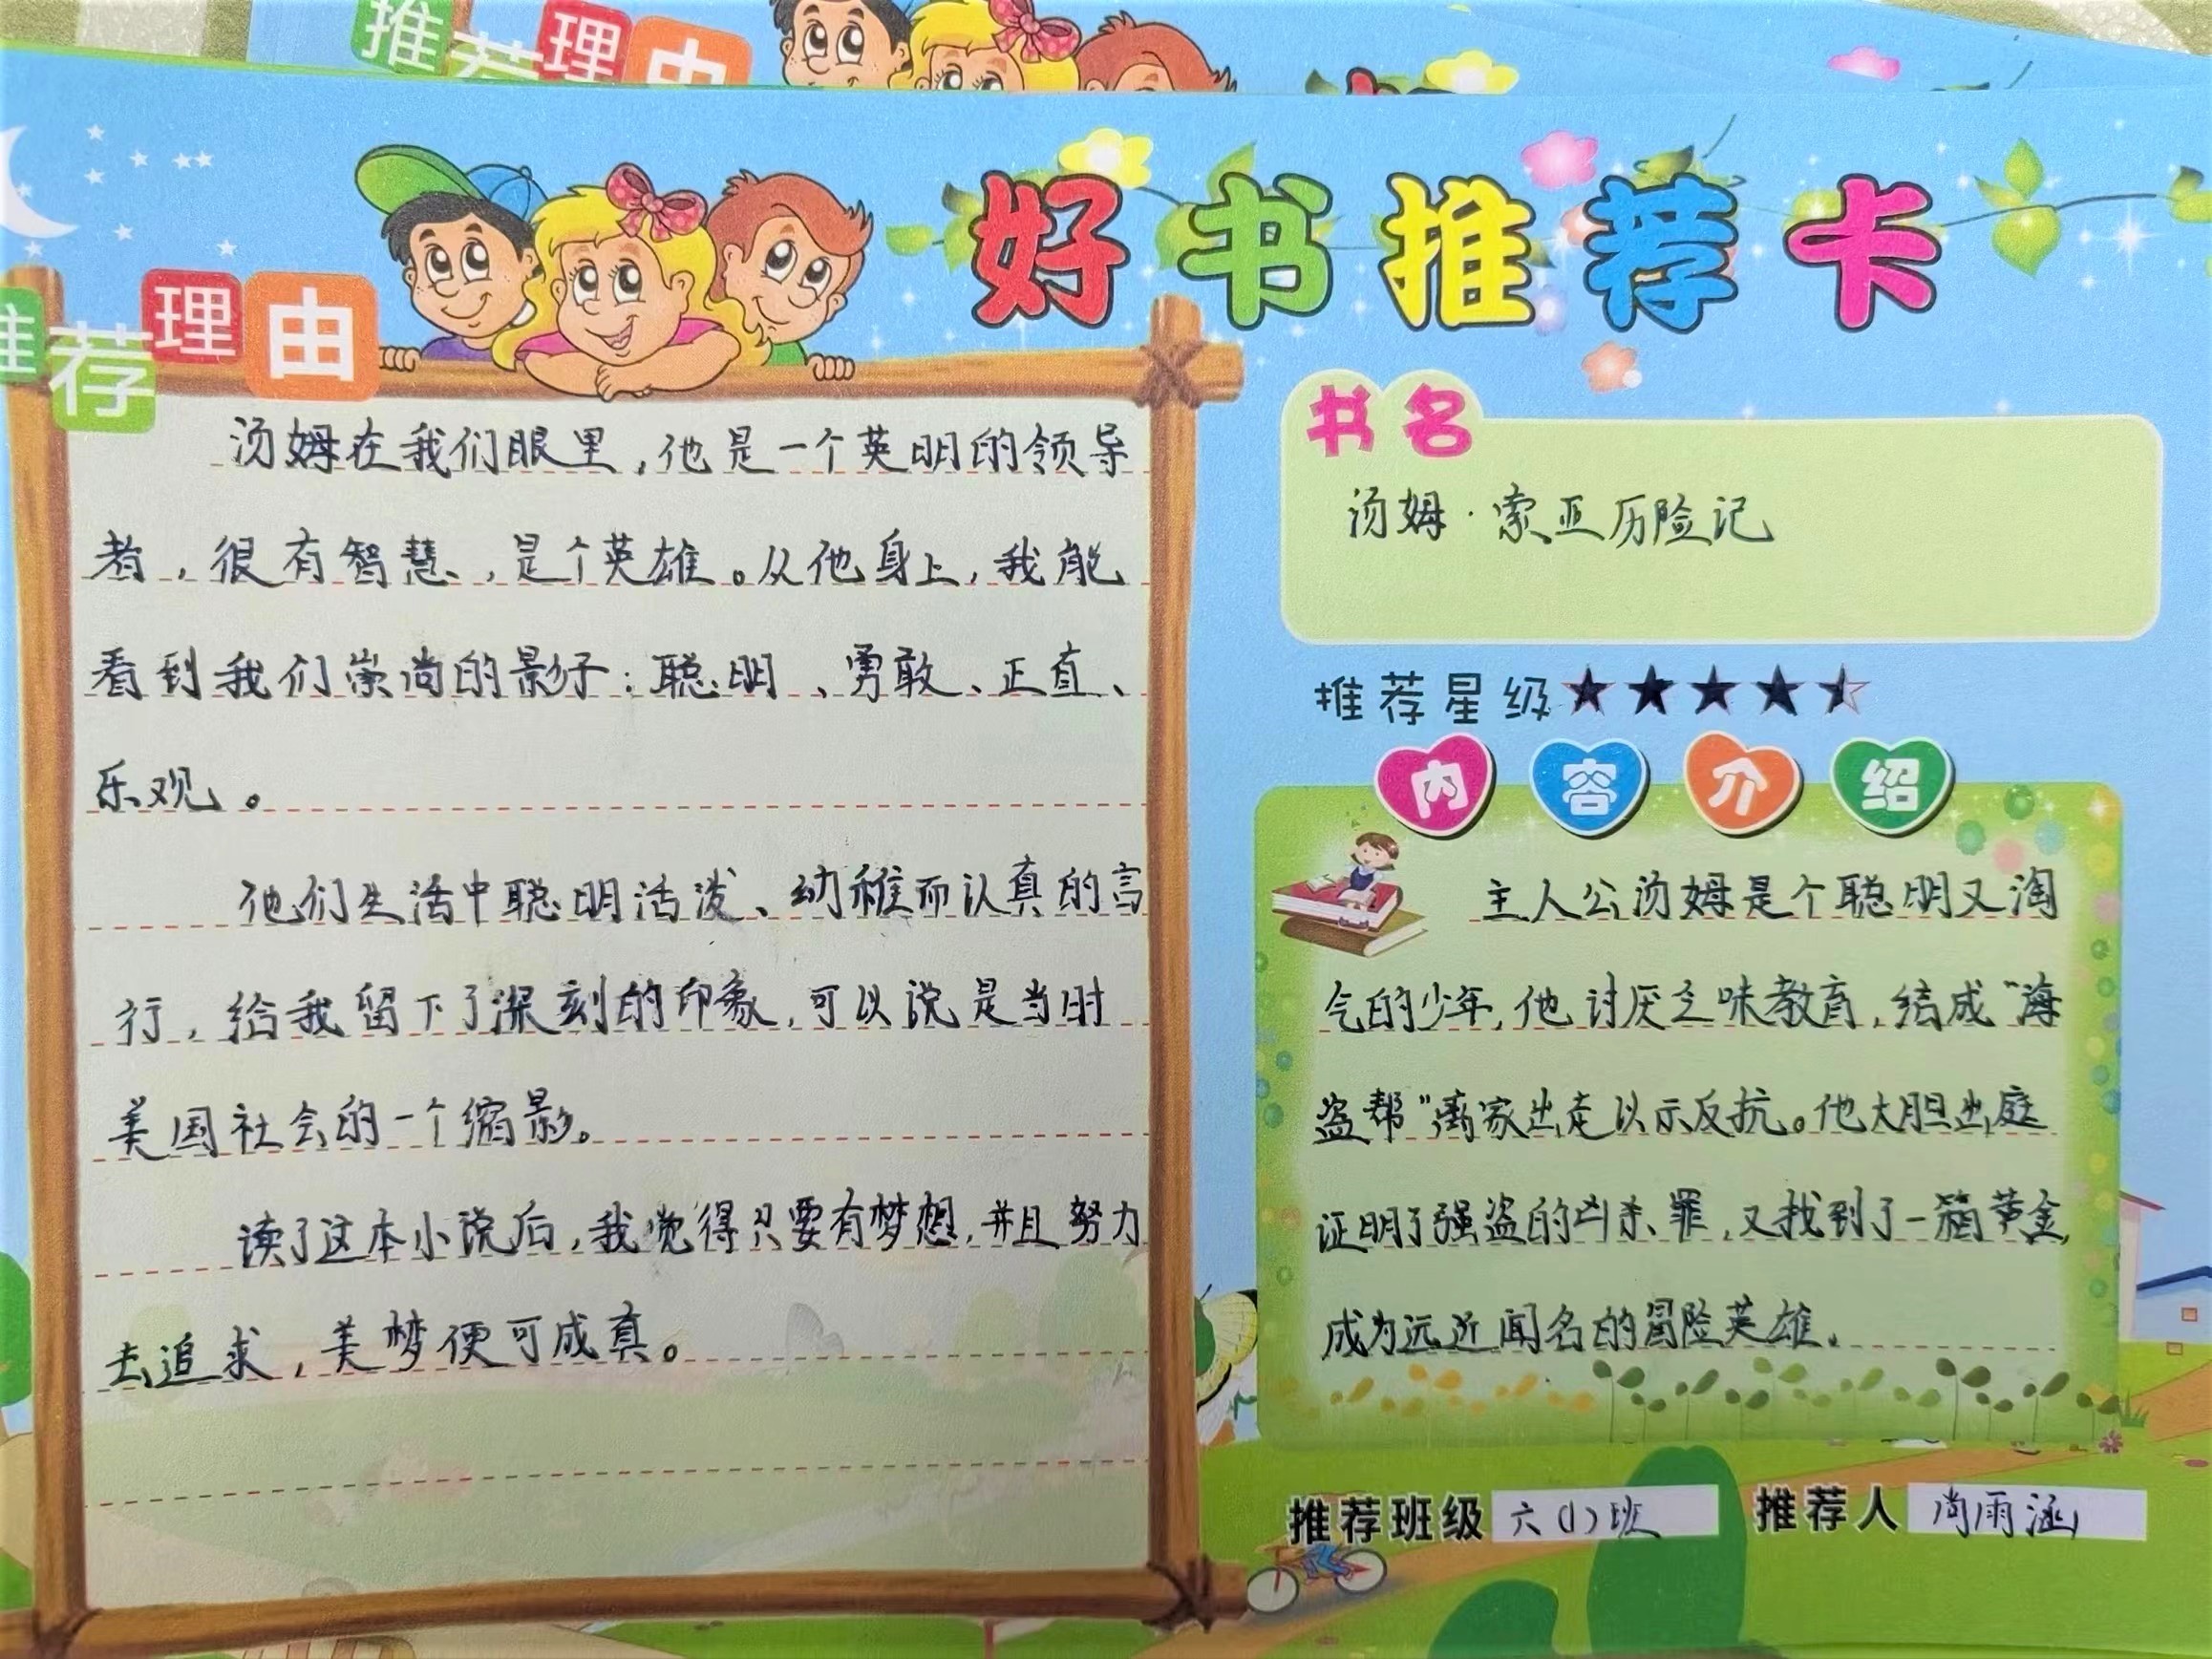 推荐理由
好书推荐卡
推荐理由
汤姆在我们眼里,他是一个英明的领导
者,很有智慧,是个英雄。从他身上,我能
看到我们崇尚的影子:聪明、勇敢、正直、
乐观。
他们生活中聪明活泼、幼稚而认真的言
行,给我留下了深刻的印象,可以说是当时
美国社会的一个缩影。
读了这本小说后,我觉得只要有梦想,并且努力
去追求,美梦便可成真。
书名
汤姆·索亚历险记
推荐星级
内容介绍
主人公汤姆是个聪明又淘
气的少年,他讨厌乏味教育,结成“海
盗帮”离家出走以示反抗。他大胆出庭
证明了强盗的凶杀罪,又找到了一箱黄金,
成为远近闻名的冒险英雄。
推荐班级 六(1)班 推荐人 尚雨涵